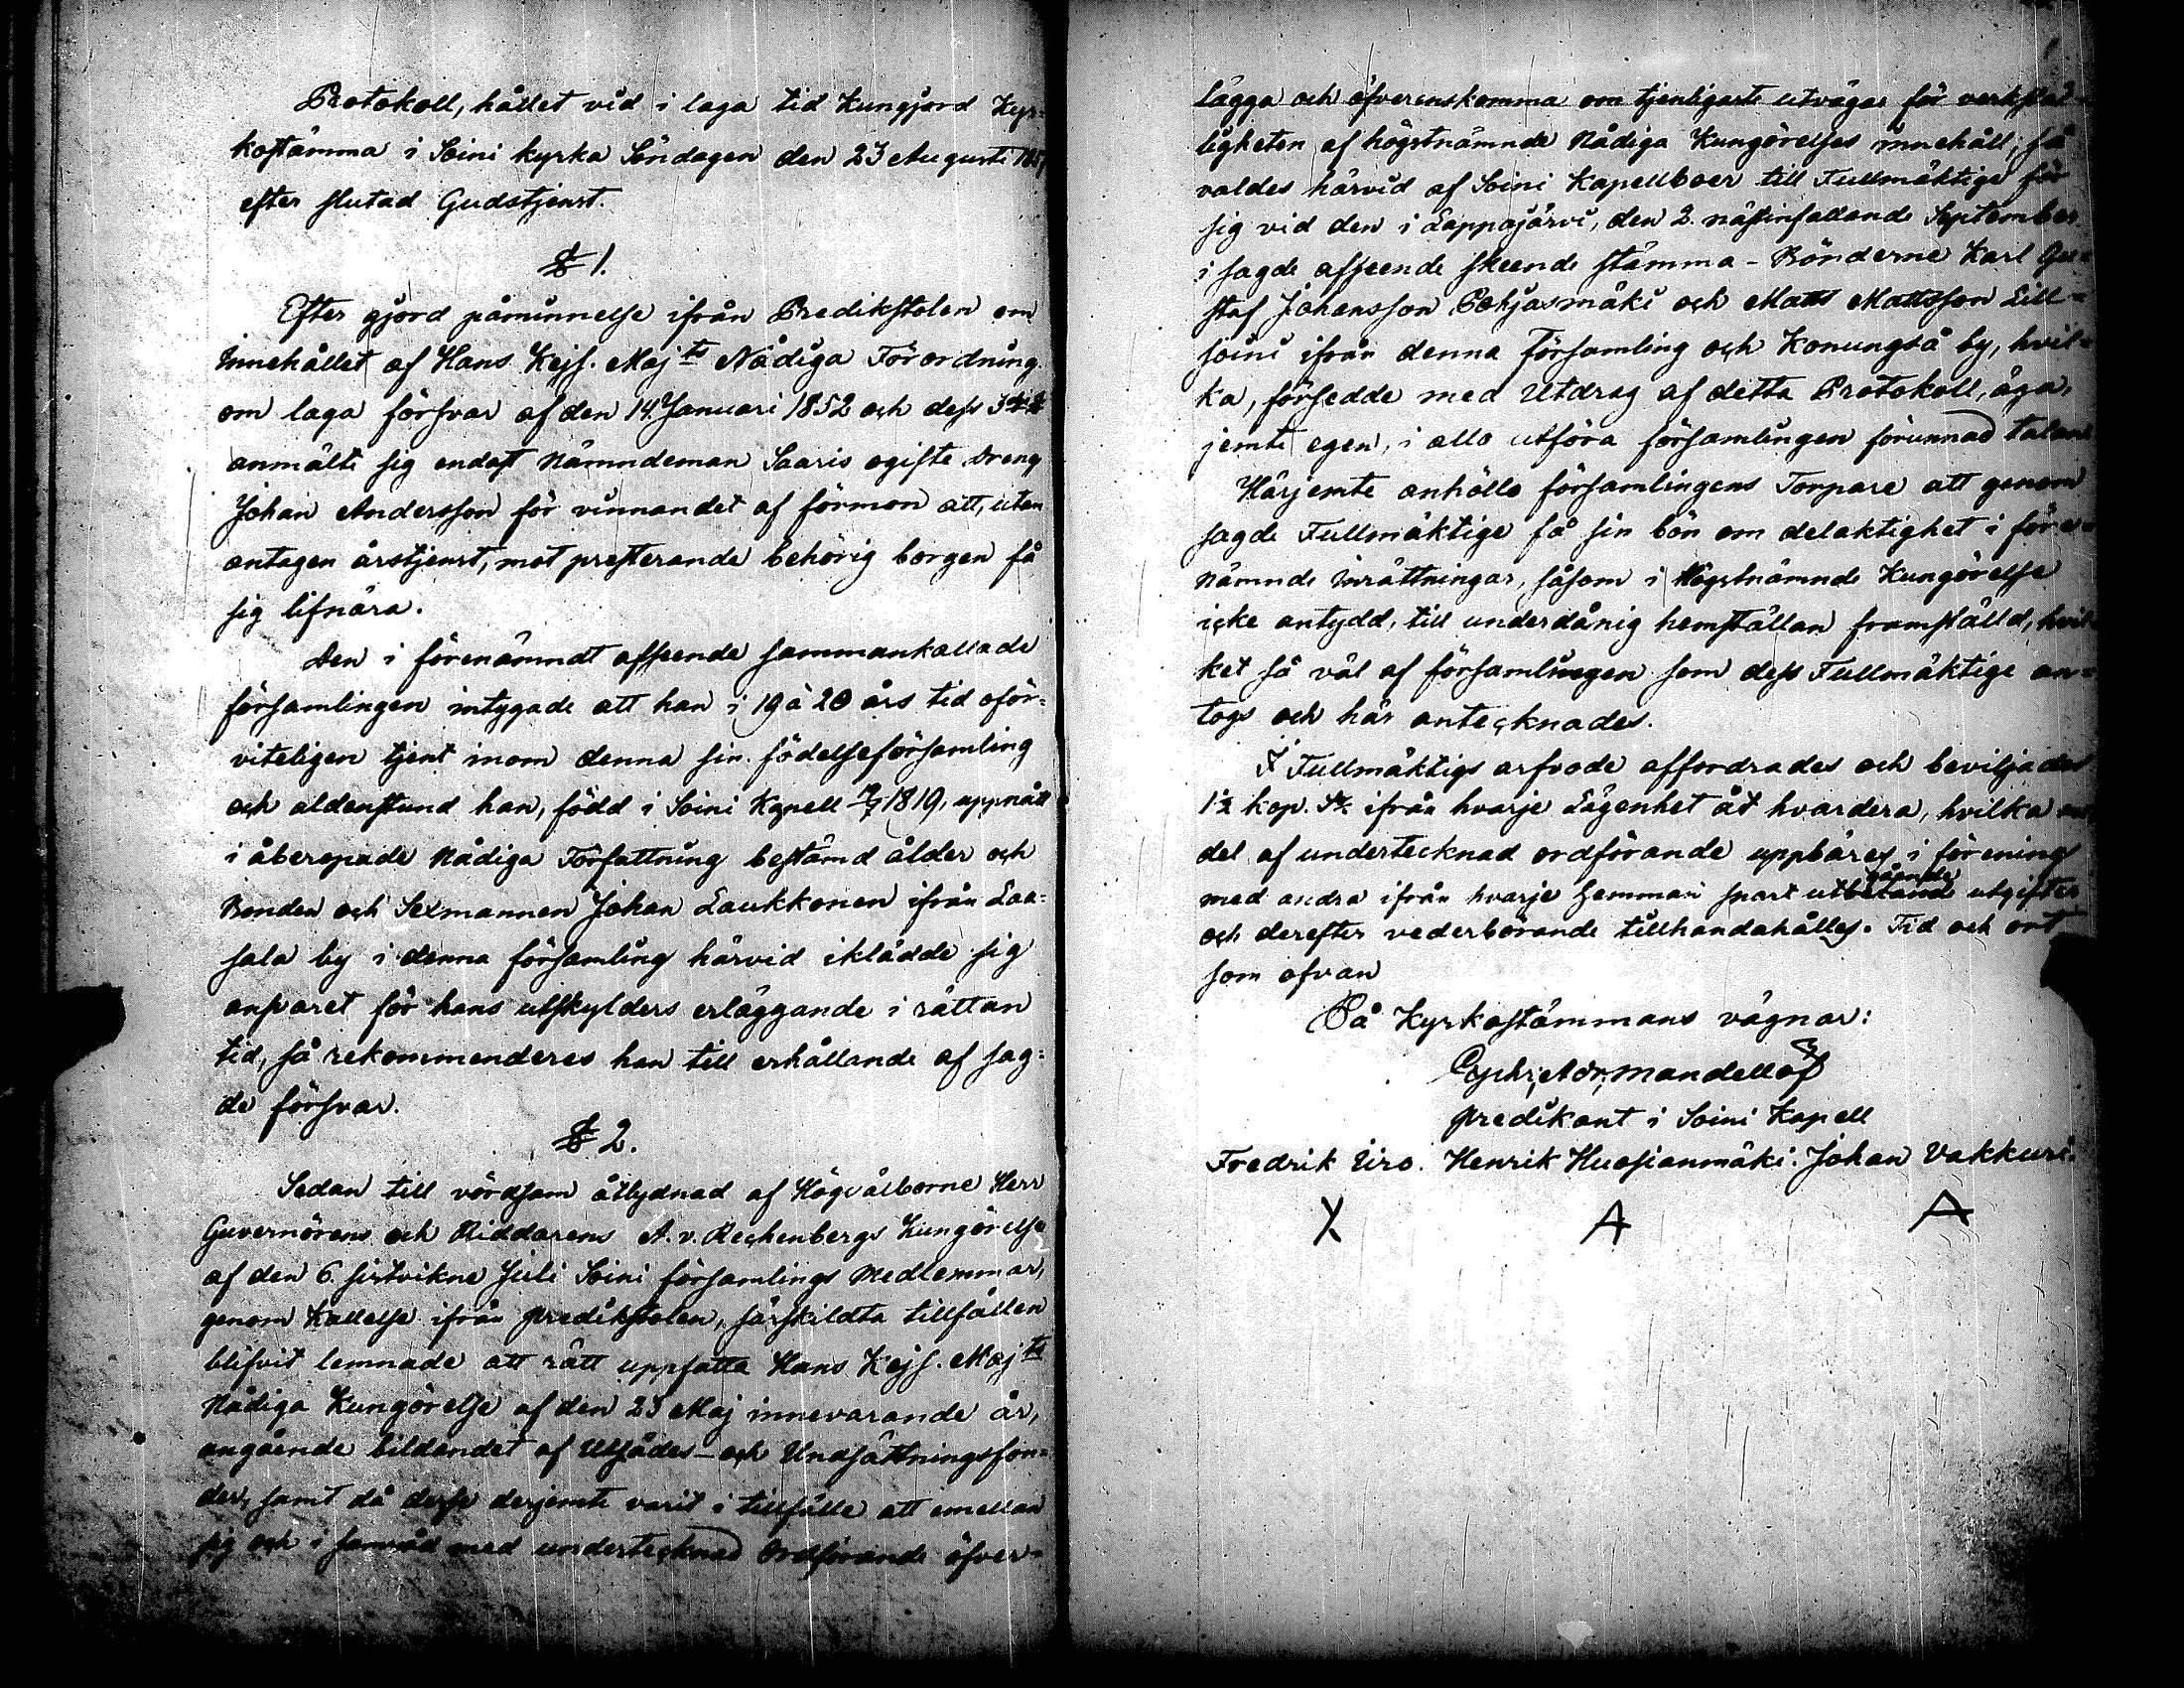 Protokoll, hållet vid i laga tid Kungjord Kyr=
kostämma i Soini kyrka Söndagen den 23 Augusti
efter slutad Gudstjenst.
§ 1.
Efter gjord påminnelse ifrån Predikstolen om
Innehållet af Hans Kejs. Maj:ts Nådiga Förordning
om laga försvar af den 14. Januari 1852 och dess 3
anmälte sig endast Nämndeman Saaris ogifte Dreng
Johan Andersson för vinnandet af förmon att, utan
antagen årstjenst, mot presterande behörig borgen få
sig lifnära.
Den i förenämndt afseende sammankallade
församlingen intygade att han i 19 à 20 års tid oför=
viteligen tjent inom denna sin födelseförsamling
och aldenstund han, född i Soini Kapell 1819, uppnått
i åberopade Nådiga Författning bestämd ålder och
Bonden och Sexmannen Johan Laukkonen ifrån Laa=
sala by i denna församling härvid iklädde sig
ansvaret för hans utskylders erläggande i rättan
tid, så rekommenderes han till erhållande af sag=
de försvar.
§ 2.
Sedan till vördsam åtlydnad af Högvälborne Herr
Guvernörens och Riddarens A. v. Rechenbergs Kungörelse
af den 6. sistvikne Juli Soini församlings Medlemmar,
genom Kallelse ifrån Predikstolen, särskildta tillfällen
blifvit lemnade att rätt uppfatta Hans Kejs. Maj:ts
Nådiga Kungörelse af den 23 Maj innevarande år,
angående bildandet af Utsädes- och Undsättningsfon=
der, samt då desse derjemte varit i tillfälle att emellan
sig och i samråd med undertecknad Ordförande öfver=
lägga och öfverenskomma om tjenligaste utvägar för verkstäl=
ligheten af högstnämnde Nådiga Kungörelses innehåll; så
valdes härvid af Soini Kapellboer till Fullmäktige för
sig vid den i Lappajärvi, den 2. nästinfallande September
i sagde afseende skeende stämma - Bönderne Karl Gu=
staf Johansson Pohjasmäki och Matts Mattsson Lill=
soini ifrån denna Församling och Konungså by, hvil=
ka, försedde med Utdrag af detta Protokoll, äga,
jemte egen, i allo utföra församlingen förunnad talan
Härjemte anhöllo församlingens Torpare att genom
sagde Fullmäktige få sin bön om delaktighet i före=
nämnde Inrättningar, såsom i Högstnämnde Kungörelse
icke antydd, till underdånig hemställan framställd, hvil=
ket så väl af församlingen som dess Fullmäktige an=
togs och här antecknades.
I Fullmäktigs arfvode affordrades och beviljades
1½ kop. Sr. ifrån hvarje Lägenhet åt hvardera, hvilka
del af undertecknad ordförande uppbäres i förening
med andra ifrån hvarje Hemman snart utgående utgifter
och derefter vederbörande tillhandahålles. Tid och ort
som ofvan
På Kyrkostämmans vägnar:
Mandellöf
Predikant i Soini Kapell
Fredrik Uiro. Henrik Huosianmäki. Johan Vakkuri.
X A A